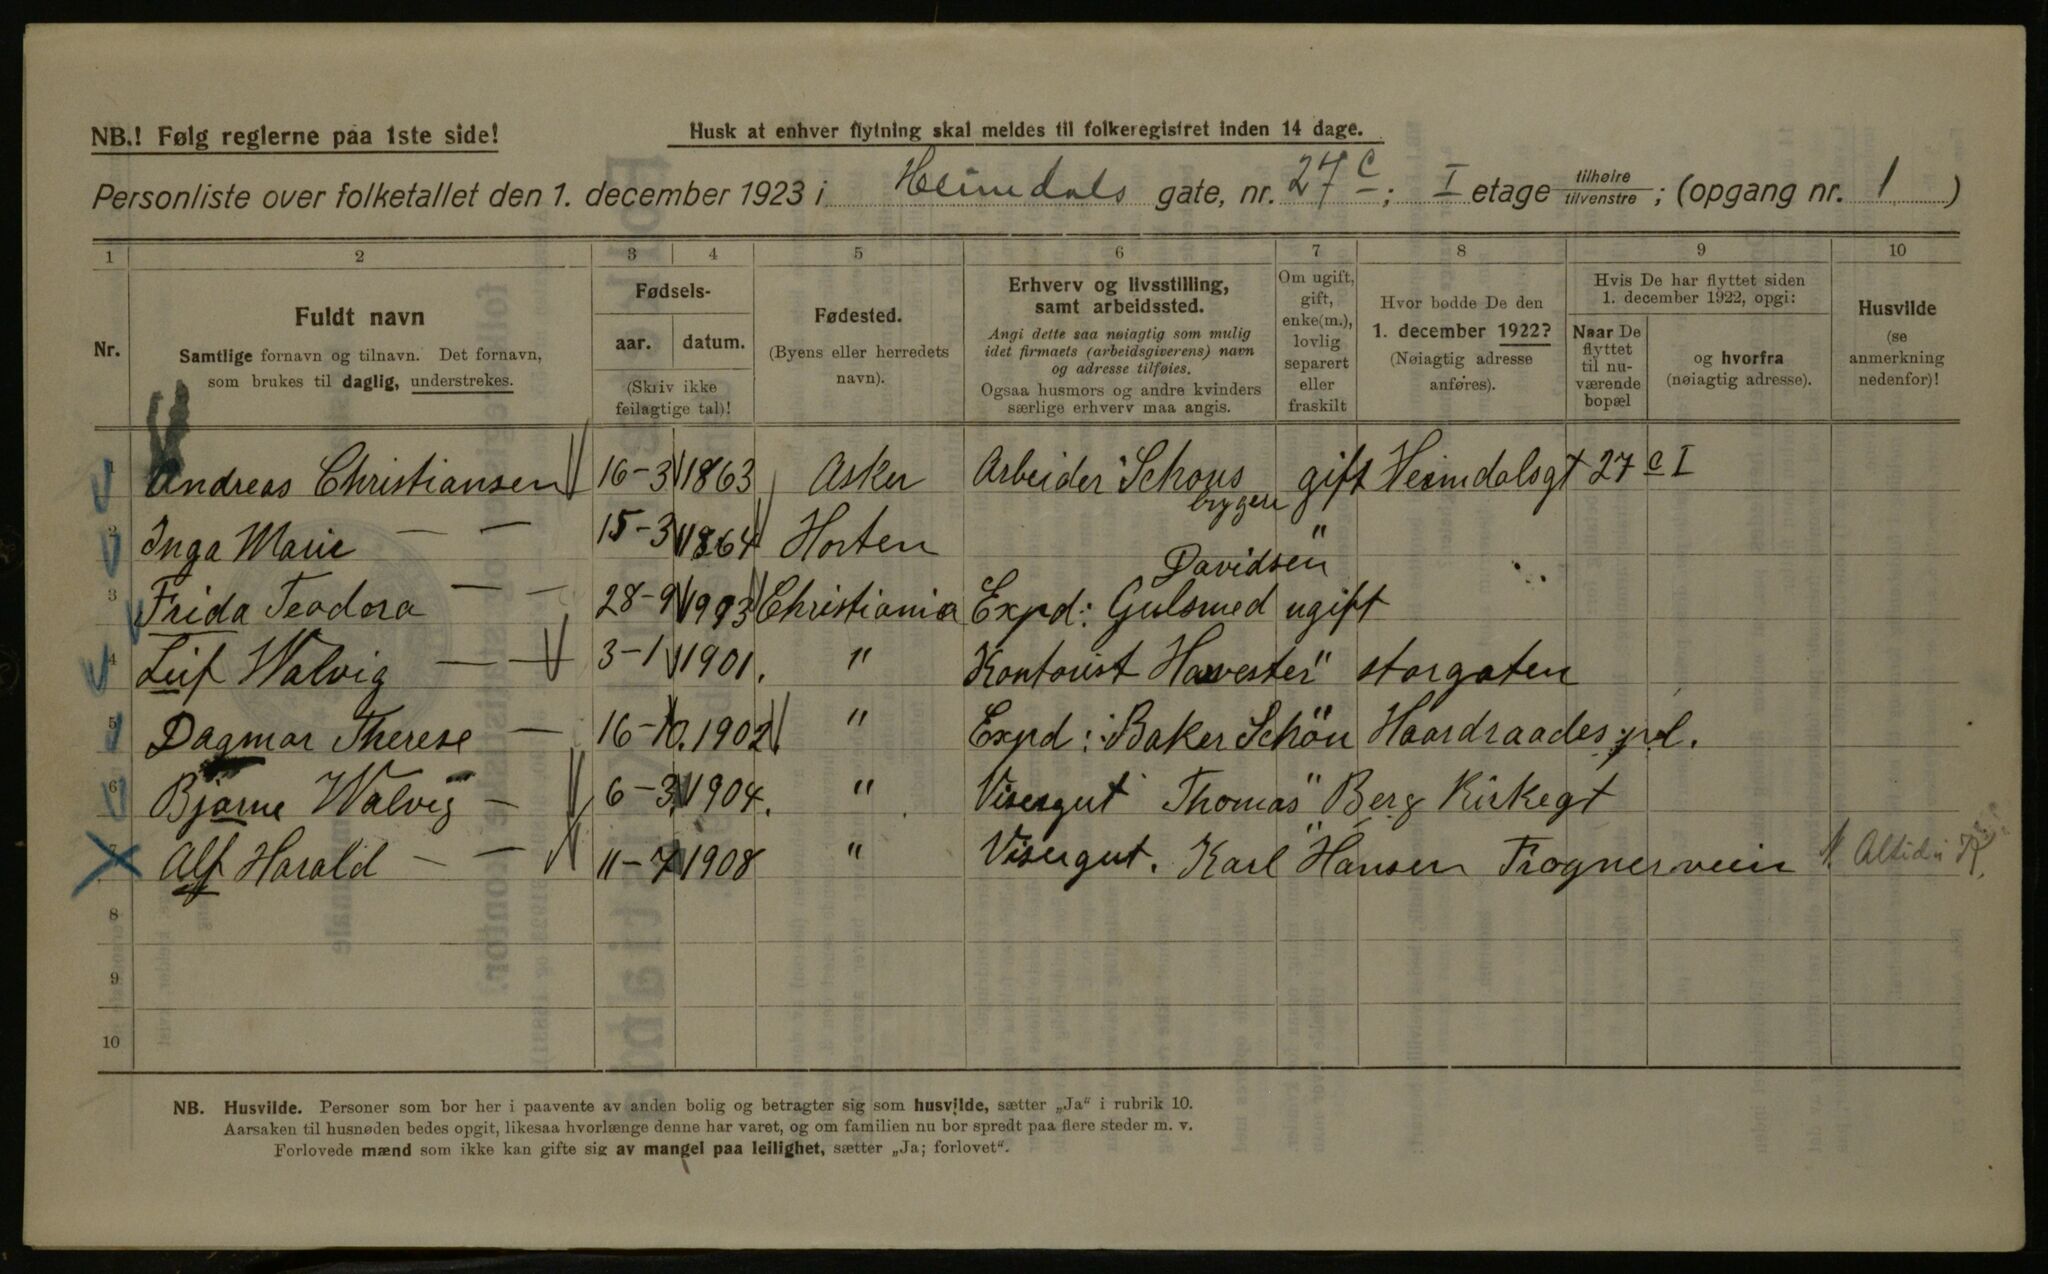 NB.! Følg reglerne paa 1ste side!
Husk at enhver flytning skal meldes til folkeregistret inden 14 dage.
Personliste over folketallet den 1. december 1923 i Heimdals gate, nr. 27 c; I etage tilhøire tilvenstre; (opgang nr. 1)
1 2 3 4 5 6 7 8 9 10
Nr.
Fuldt navn
Samtlige fornavn og tilnavn. Det fornavn,
som brukes til daglig, understrekes.
Fødsels-
aar. datum.
(Skriv ikke
feilagtige tal)!
Fødested.
(Byens eller herredets
navn).
Erhverv og livsstilling,
samt arbeidssted.
Angi dette saa nøiagtig som mulig
idet firmaets (arbeidsgiverens) navn
og adresse tilføies.
Ogsaa husmors og andre kvinders
særlige erhverv maa angis.
Om ugift,
gift,
enke(m.),
lovlig
separert
eller
fraskilt
Hvor bodde De den
1. december 1922?
(Nøiagtig adresse
anføres).
Hvis De har flyttet siden
1. december 1922, opgi:
Naar De
flyttet
til nu-
værende
bopæl
og hvorfra
(nøiagtig adresse).
Husvilde
(se
anmerkning
nedenfor)!
1 Andreas Christiansen 16-3 1863 Asker Arbeider Schous bryggeri gift Heimdalsgt 27 c I
2 Inga Marie — — 15-3 1864 Horten "
3 Frida Teodora — — 28-9 1903 Christiania Expd: Gulsmed Davidsen ugift
4 Leif Walvig — — 3-1 1901. " Kontorist Havester " storgaten
5 Dagmar Therese — 16-10. 1902. " Expd: Baker Schön Haardraades pl.
6 Bjarne Walvig — 6-3 1904. " Visergut Thomas " Berg Kirkegt
7 Alf Harald — — 11-7 1908 " Visergut. Karl " Hansen Frognerveien Altid i K
8
9
10
NB. Husvilde. Personer som bor her i paavente av anden bolig og betragter sig som husvilde, sætter „Ja“ i rubrik 10.
Aarsaken til husnøden bedes opgit, likesaa hvorlænge denne har varet, og om familien nu bor spredt paa flere steder m. v.
Forlovede mænd som ikke kan gifte sig av mangel paa leilighet, sætter „Ja; forlovet“.